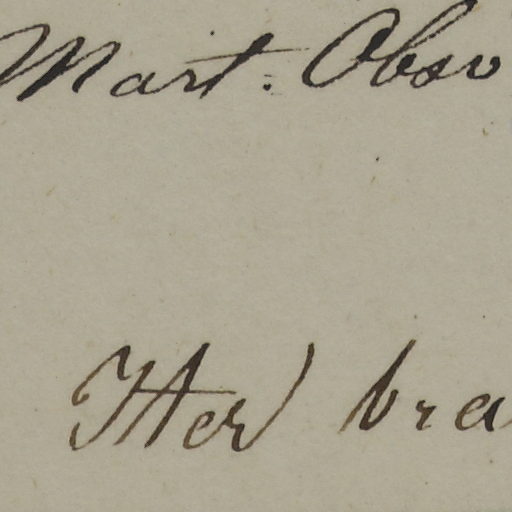 Mart. Obsv
Herd bra